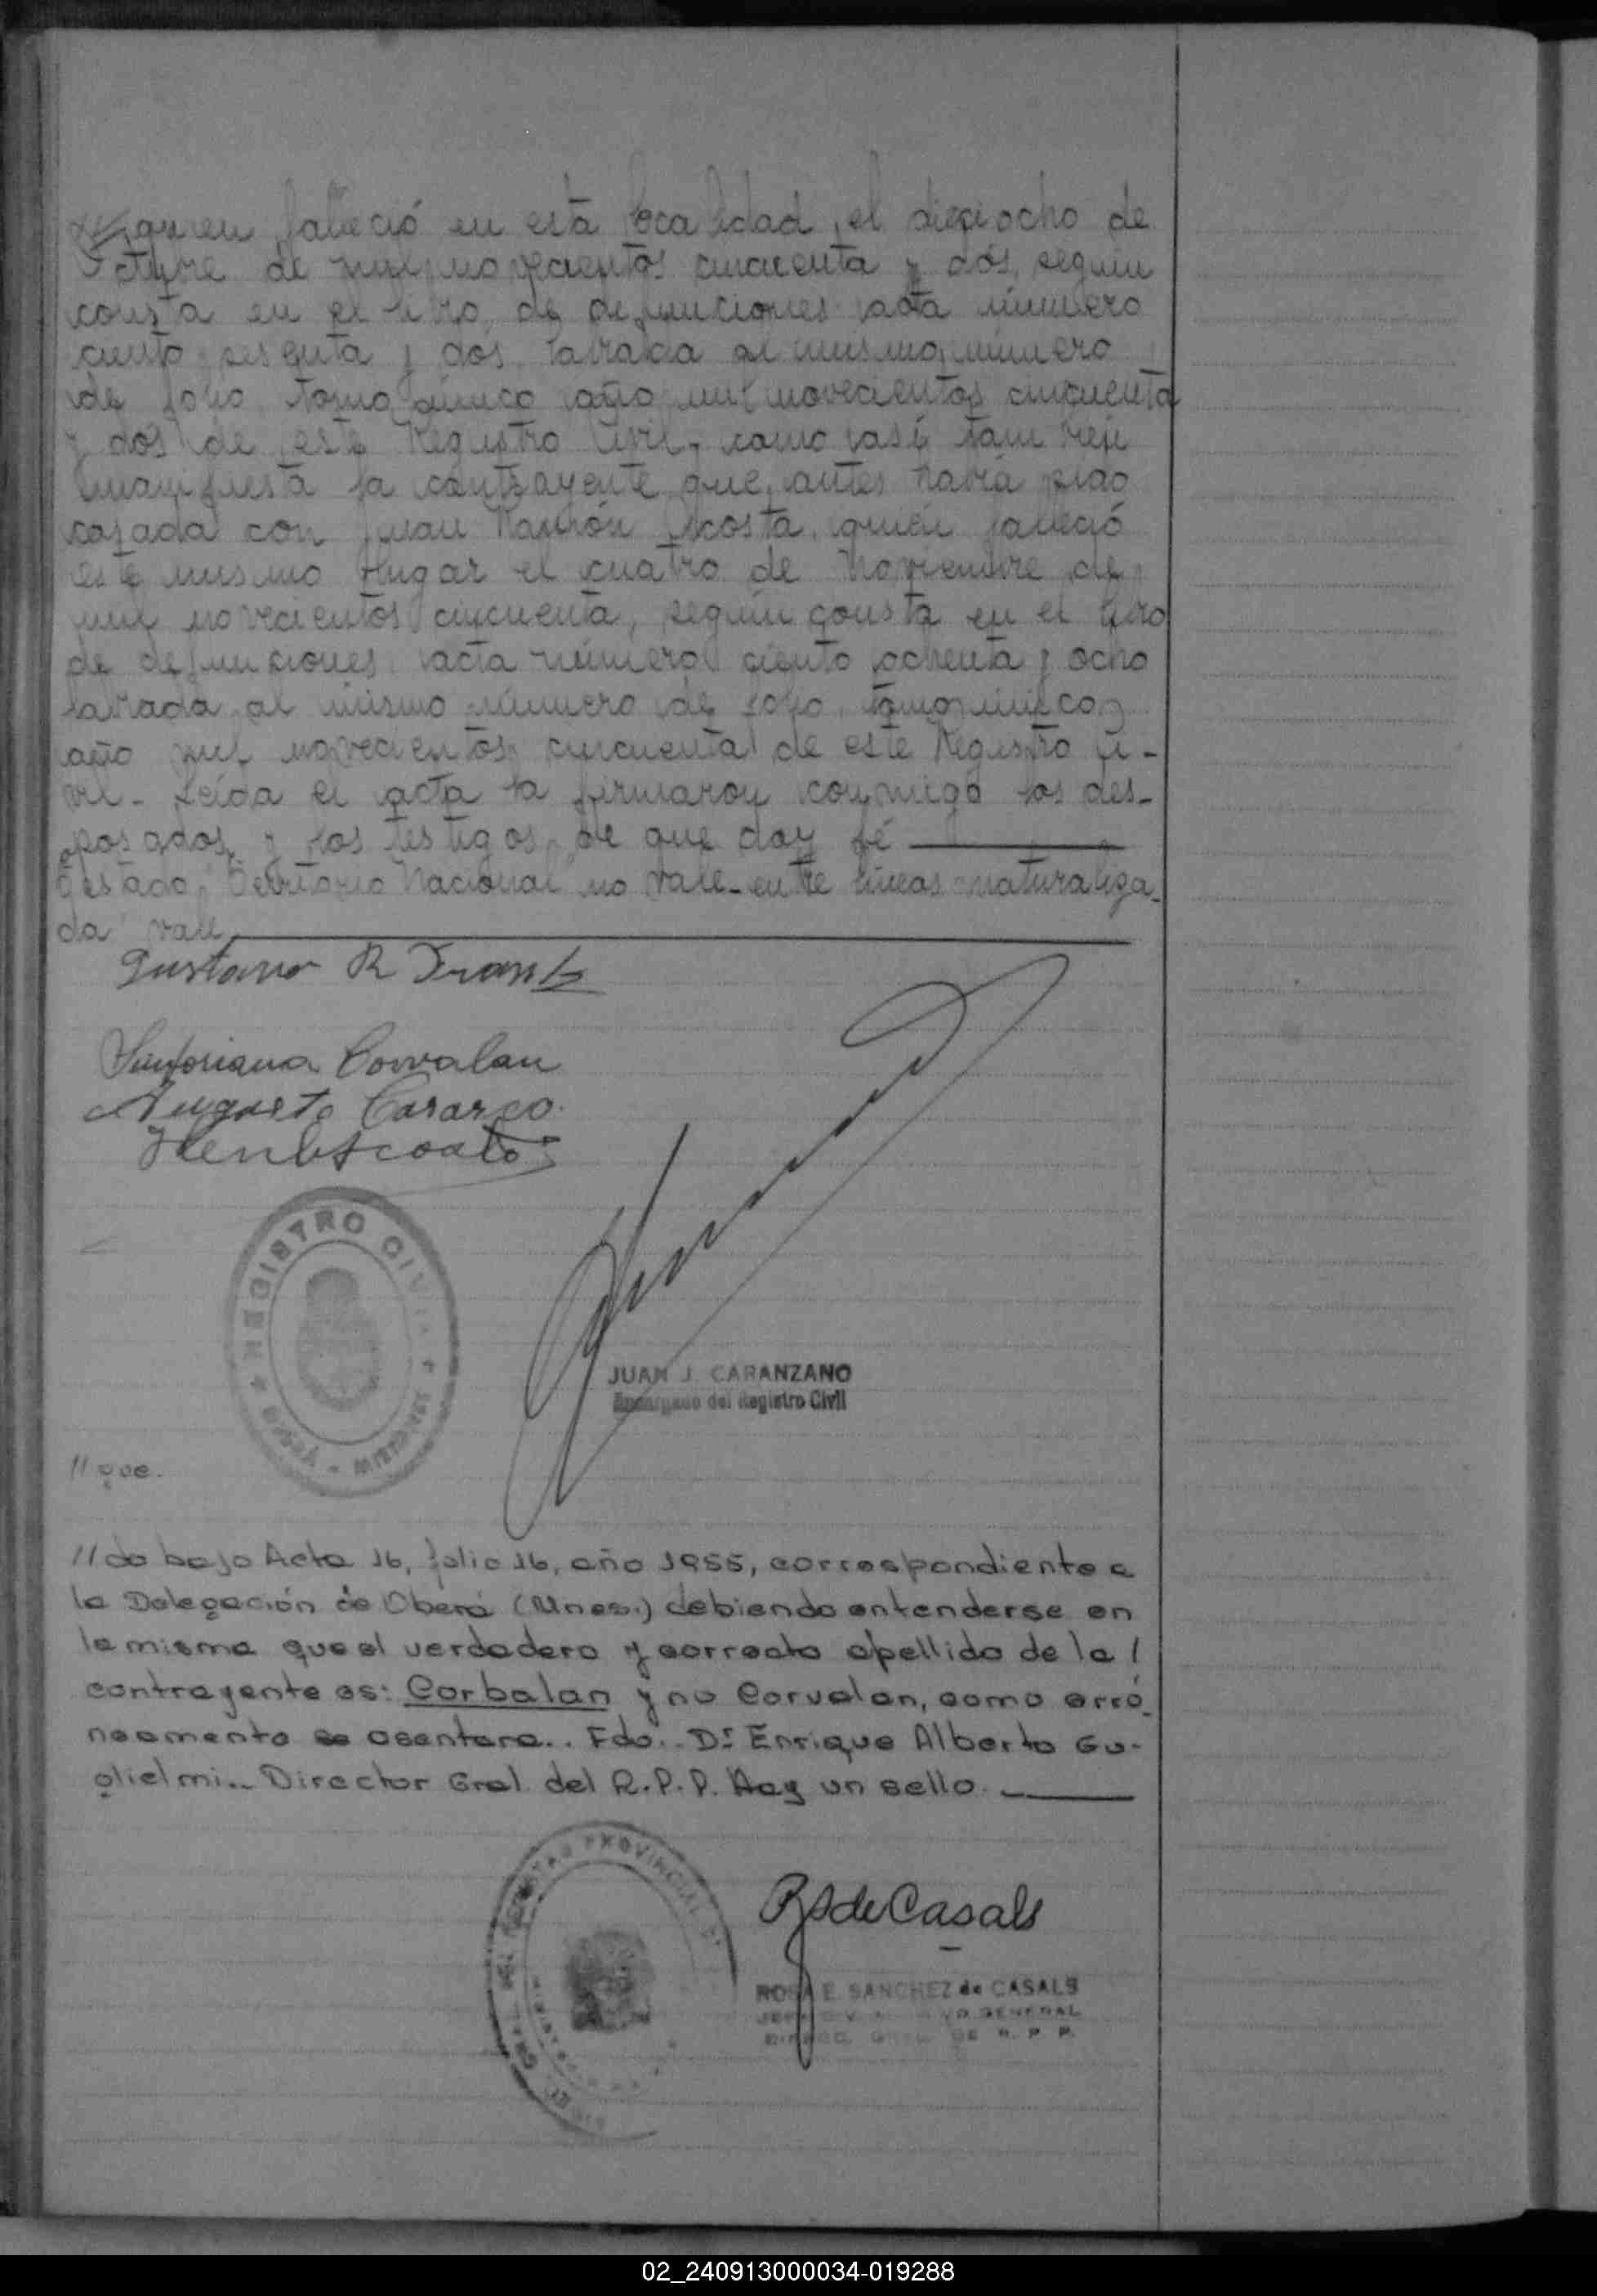 quien falleció en esta localidad, el dieciocho de
Octubre de mil novecientos cincuenta y dós, según
consta en el libro de defunciones acta número
ciento sesenta y dos labrada al mismo número
de folio tomo único año mil novecientos cincuenta
y dos de este Registro Civil, como así tam bien
manifiesta la contrayente que, antes había sido
casada con Juan Ramón Acosta, quién falleció
este mismo lugar el cuatro de Noviembre de
mil novecientos cincuenta, según consta en el libro
de defunciones, acta número ciento ochenta y ocho
labrada al mismo número de folio, tomo único,
año mil novecientos cincuenta de este Registro Ci-
vil- Leída el acta la firmaron conmigo los des-
posados, y los testigos, de que doy fé
Testado, "Territorio Nacional" no vale- entre líneas "naturaliza-
da" vale
Gustavo R
Corvalan
Augusto
REGISTRO CIVIL
MISIONES
JUAN J. CARANZANO
Encargado del Registro Civil
//que.
//do bajo Acta 16, folio 16, año 1955, correspondiente a
la Delegación de Oberá (Mnes.) debiendo entenderse en
la misma que el verdadero y correcto apellido de la /
contrayente es: Corbalan y no Corvalan, como erró-
neamente se asentara.. Fdo.. Dr Enrique Alberto Gu-
glielmi.. Director Gral. del R.P.P. Hay un sello.
PROVINCIAL
RS de Casals
ROSA E. SANCHEZ de CASALS
GENERAL
DE R. P. P.
02_240913000034-019288